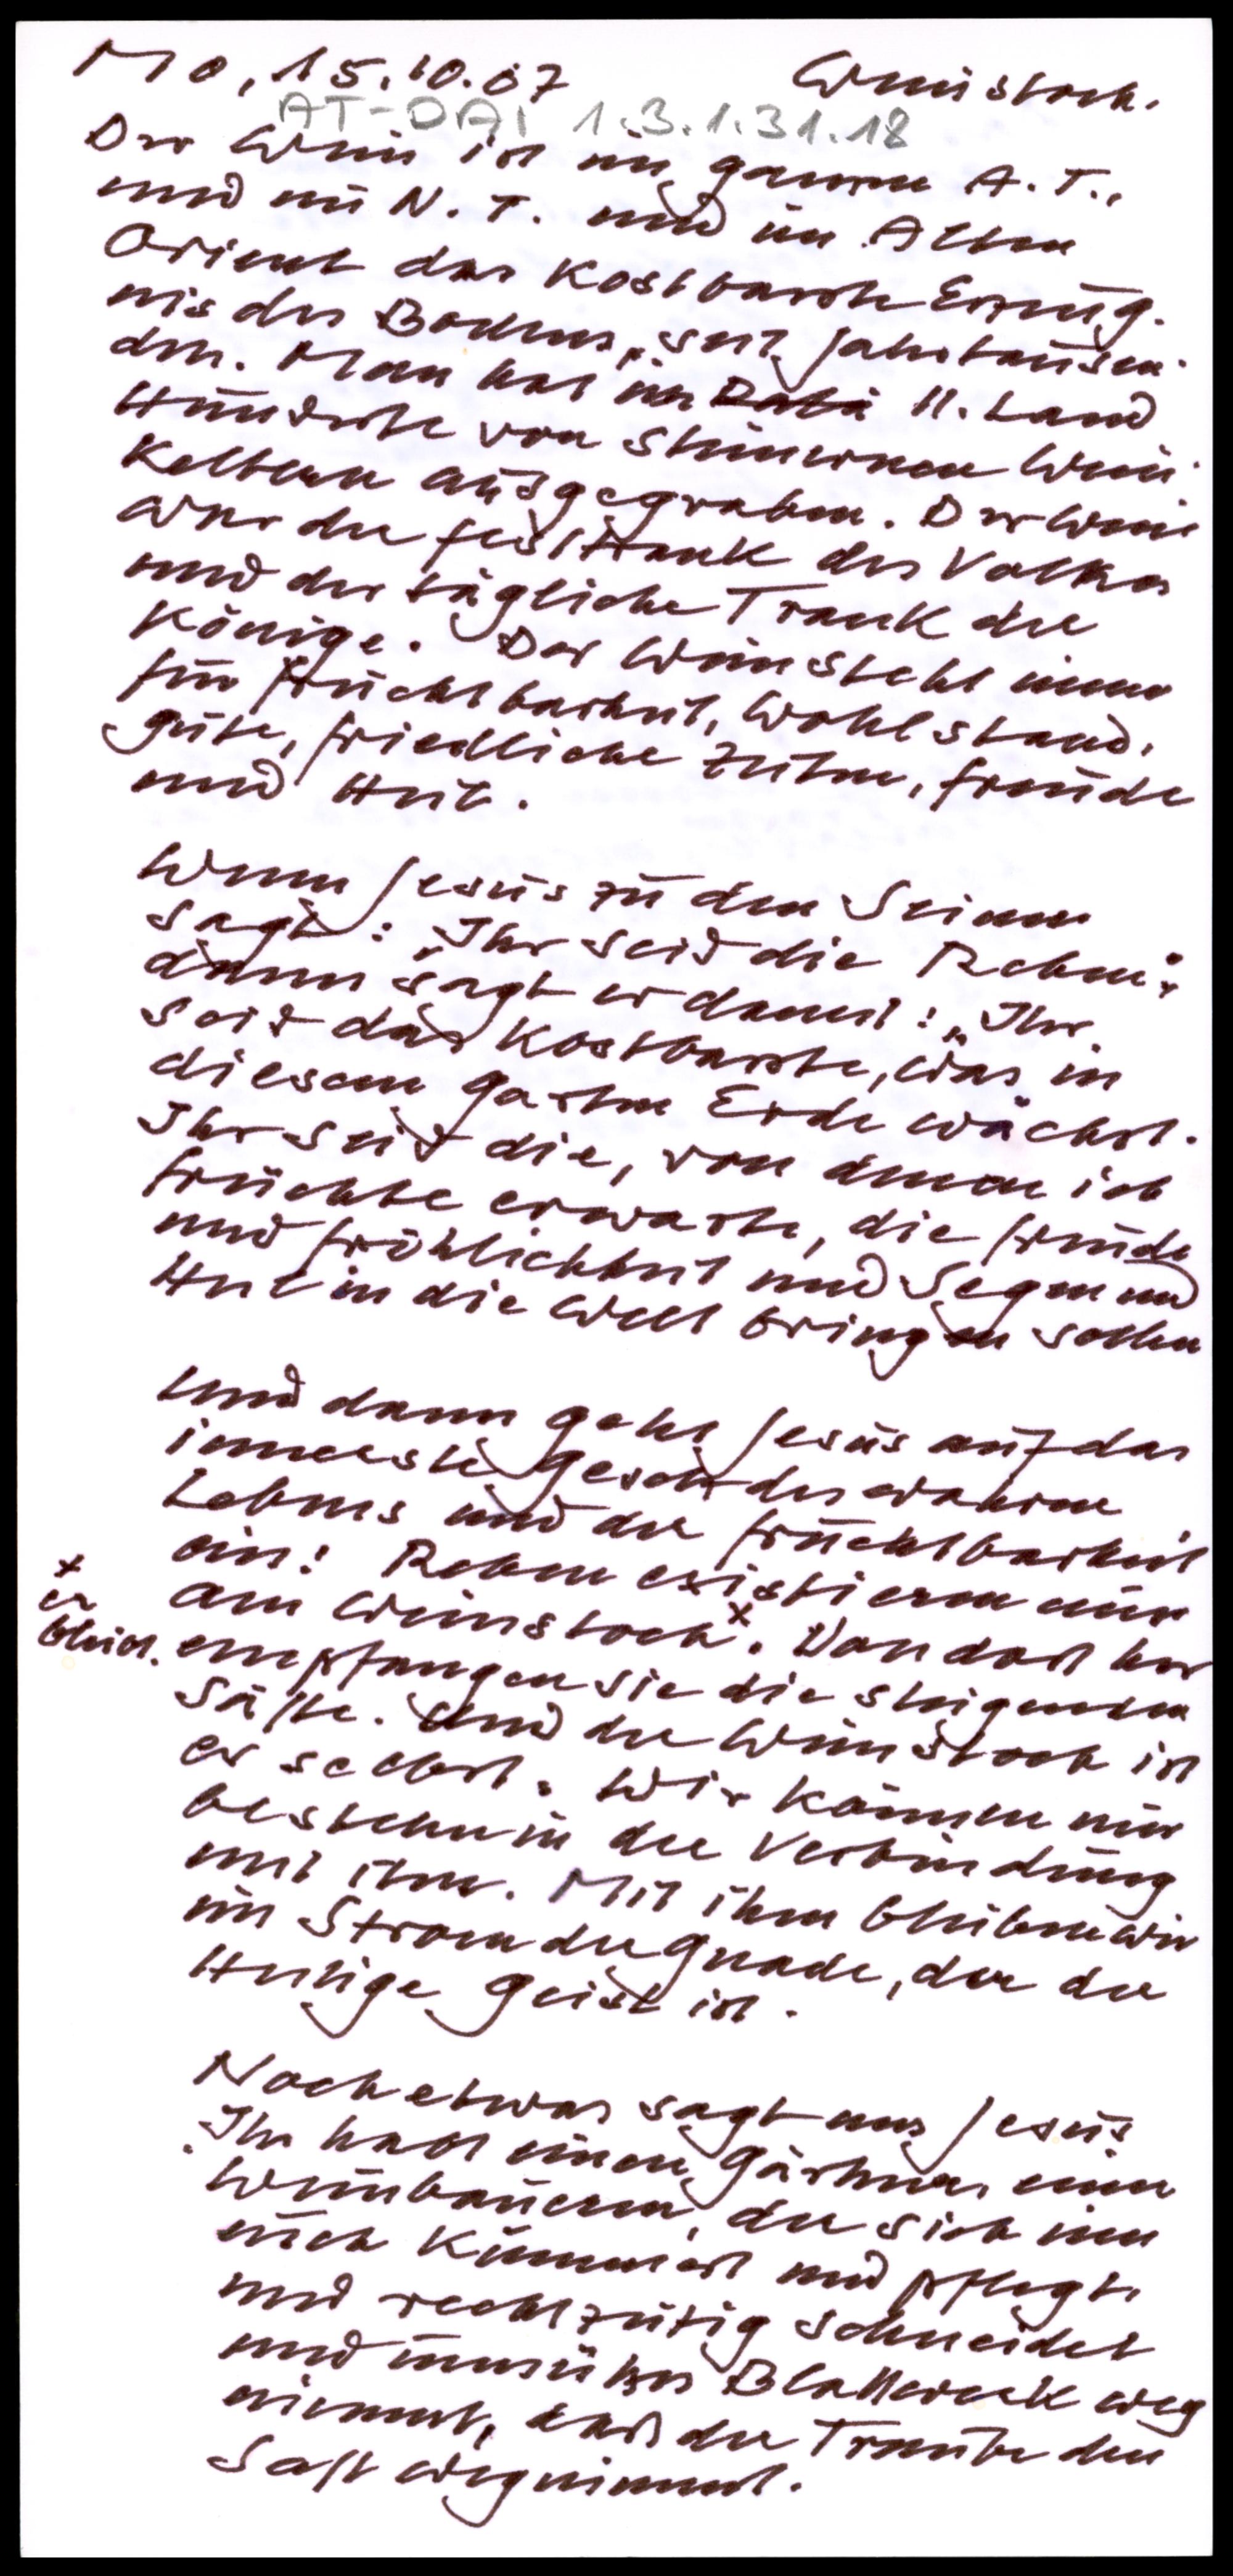 Mo, 15.10.07 Weinstock.
AT-DAI 1.3.1.31.18
Der Wein ist im ganzen A.T.,
und im N.T. und im Alten
Orient das kostbarste Erzeug-
nis des Bodens, seit Jahrtausen-
den. Man hat im Hl. Land
Hunderte von steinernen Wein-
keltern ausgegraben. Der Wein
war der Festtrank des Volkes
und der tägliche Trank der
Könige. Der Wein steht immer
für Fruchtbarkeit, Wohlstand,
gute, friedliche Zeiten, Freude
und Heil.
Wenn Jesus zu den Seinen
sagt: "Ihr seid die Reben",
dann sagt er damit: "Ihr
seid das Kostbarste, was in
diesem Garten Erde wächst.
Ihr seid die, von denen ich
Früchte erwarte, die Freude
und Fröhlichkeit und Segen und
Heil in die Welt bringen sollen
Und dann geht Jesus auf das
innerste Gesetz des wahren
Lebens und der Fruchtbarkeit
ein: Reben existieren nur
am Weinstock x. Von dort her
x
er
bleibt.
empfangen sie die steigenden
Säfte. Und der Weinstock ist
er selbst. Wir können nur
bestehen in der Verbindung
mit ihm. Mit ihm bleiben wir
im Strom der Gnade, der der
Heilige Geist ist.
Noch etwas sagt uns Jesus
Ihr habt einen Gärtner, einen
Weinbauern, der sich um
euch kümmert und pflegt,
und rechtzeitig schneidet
und unnützes Blattwerk weg
nimmt, das der Traube den
Saft wegnimmt.